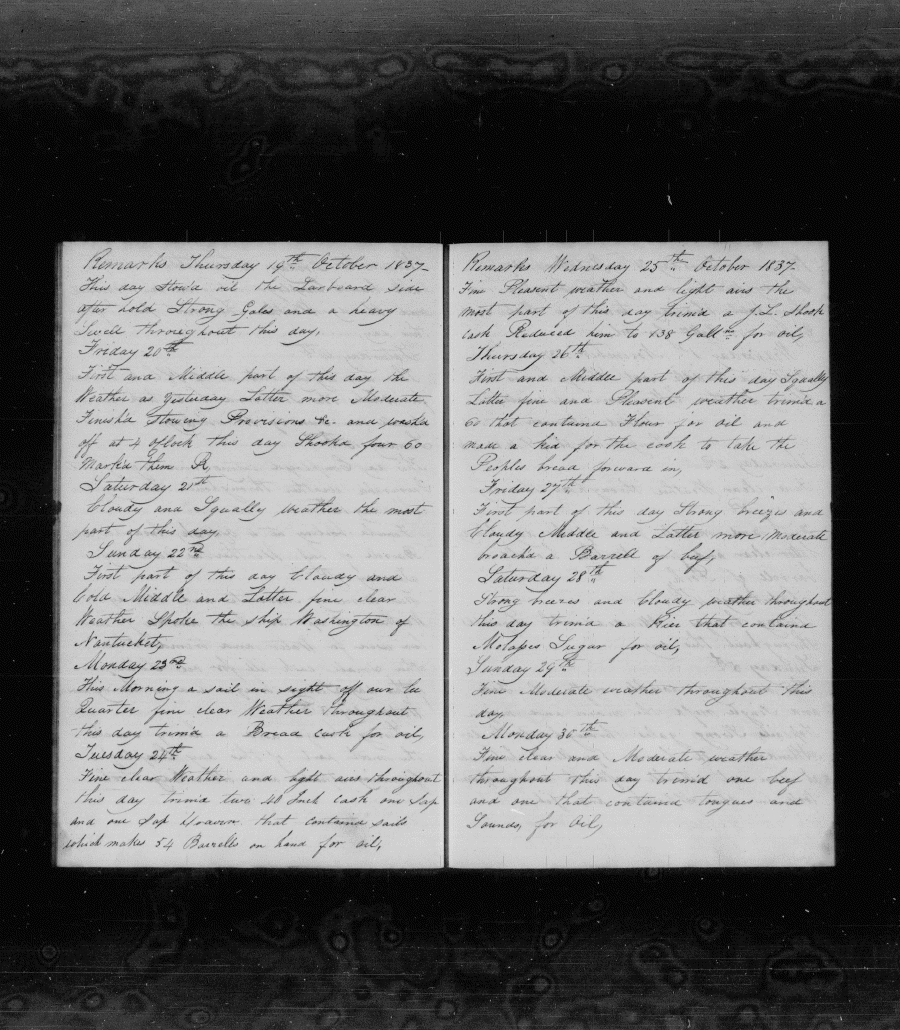 Remarks Thursday 19th October 1837-
This day Stow'd oil the Larboard side
after hold Strong Gales and a heavy
Swell throughout this day,
Friday 20th
First and Middle part of this day the
Weather as Yesterday Latter more Moderate
Finish'd Stowing Provisions &c. and wash'd
off at 4 oflock this day Shook'd four 60
Mark'd them R
Saturday 21st
Cloudy and Squally weather the most
part of this day
Sunday 22nd
First part of this day Cloudy and
Cold Middle and Latter fine clear
Weather Spoke the ship Washington of
Nantucket,
Monday 23rd
This Morning a sail in sight off our Lee
Quarter fine clear Weather throughout
this day trim'd a Bread cask for oil,
Tuesday 24th
Fine clear Weather and light airs throughout
this day trim'd two 40 Inch cask one Sap
and one Sap that contain'd sails
which makes 54 Barrells on hand for oil,
Remarks Wednesday 25th October 1837-
Fine Pleasent weather and light airs the
most part of this day trim'd a J.L. Shook
cask Reduced him to 138 Galls for oil,
Thursday 26th
First and Middle part of this day Squally
Latter fine and Pleasent weather trim'd a
60 that contain'd Flour for oil and
made a kid for the cook to take the
Peoples bread forward in,
Friday 27th
First part of this day Strong breezes and
Cloudy Middle and Latter more Moderate
broach'd a Barrell of beef,
Saturday 28th
Strong breezes and Cloudy weather throughout
this day trim'd a Rier that contain'd
Molasses Sugar for oil,
Sunday 29th
Fine Moderate weather throughout this
day,
Monday 30th
Fine clear and Moderate weather
throughout this day trim'd one beef
and one that contain'd tongues and
Sounds, for Oil,